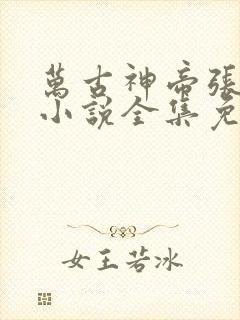 萬古神帝張
小說全集免
女王若冰